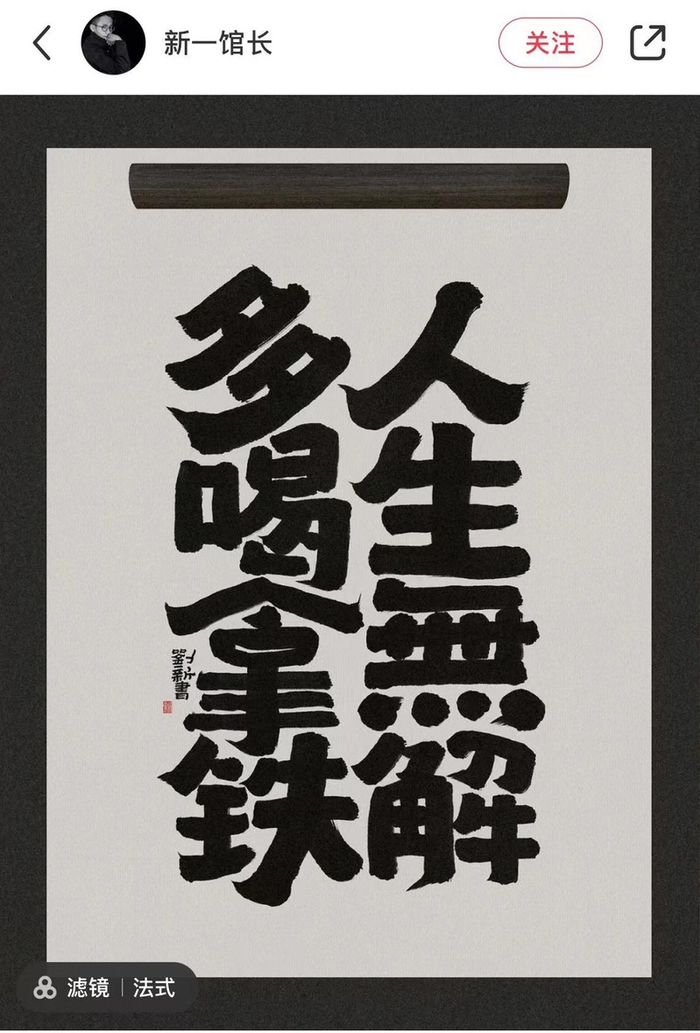 新一馆长
关注
人生無解
多喝拿铁
劉新書
滤镜 | 法式